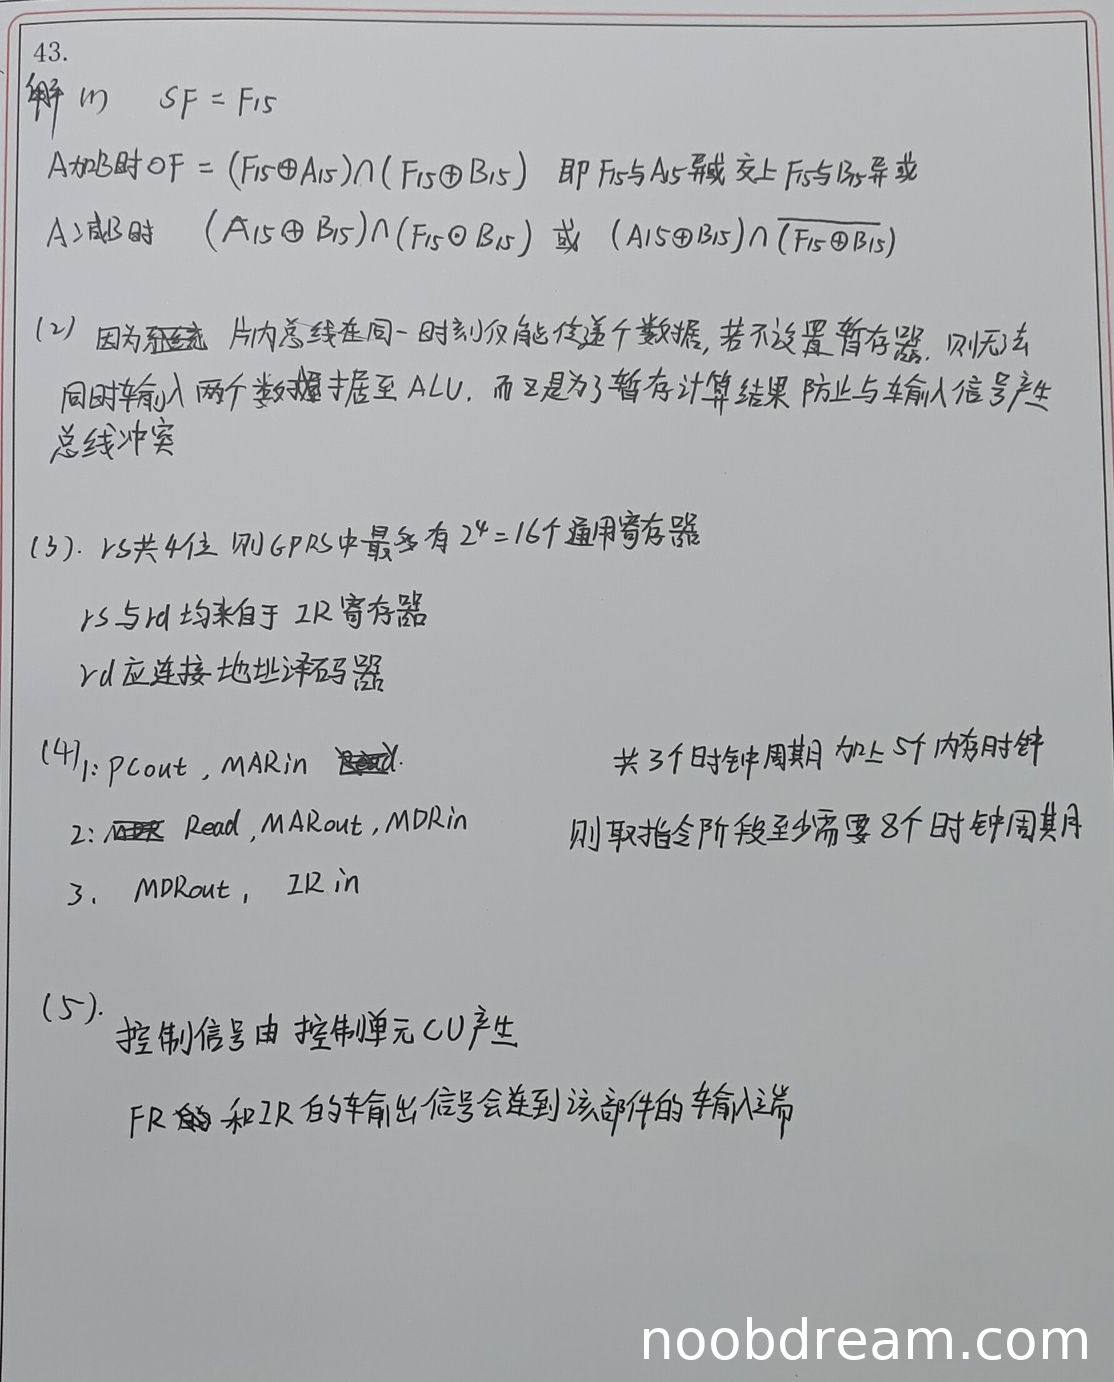 43.
解 (1) SF = F15
A加B时OF = (F15⊕A15)∩(F15⊕B15) 即 F15与A15异或 交上 F15与B15异或
A减B时 (A15⊕B15)∩(F15⊙B15) 或 (A15⊕B15)∩\overline{(F15⊕B15)}
(2) 因为 片内总线在同一时刻仅能传递个数据,若不设置暂存器.则无法
同时输入两个数据至ALU.而Z是为了暂存计算结果 防止与输入信号产生
总线冲突
(3). rs共4位 则GPRS中最多有 2⁴=16个通用寄存器
rs与rd均来自于 IR寄存器
rd应连接地址译码器
(4) 1: PCout , MARin
共3个时钟周期 加上5个内存时钟
2: Read , MARout , MDRin
则取指令阶段至少需要8个时钟周期
3. MDRout , IRin
(5).
控制信号由 控制单元CU产生
FR 和IR的输出信号会连到该部件的输入端
noobdream.com